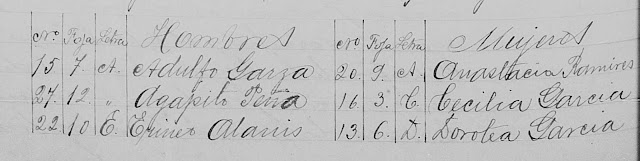 No. Foja Letra Hombres No. Foja Letra Mujeres
15. 7. A. Adulfo Garza 20. 9. A. Anastacia Ramires
27. 12. " Agapito Peña 16. 3. C. Cecilia Garcia
22. 10. E. Alanis 13. 6. D. Dorotea Garcia